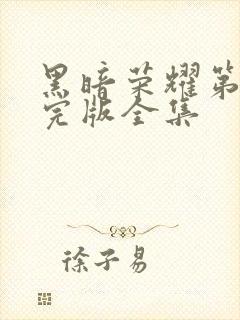 黑暗荣耀第
完版全集
徐子易